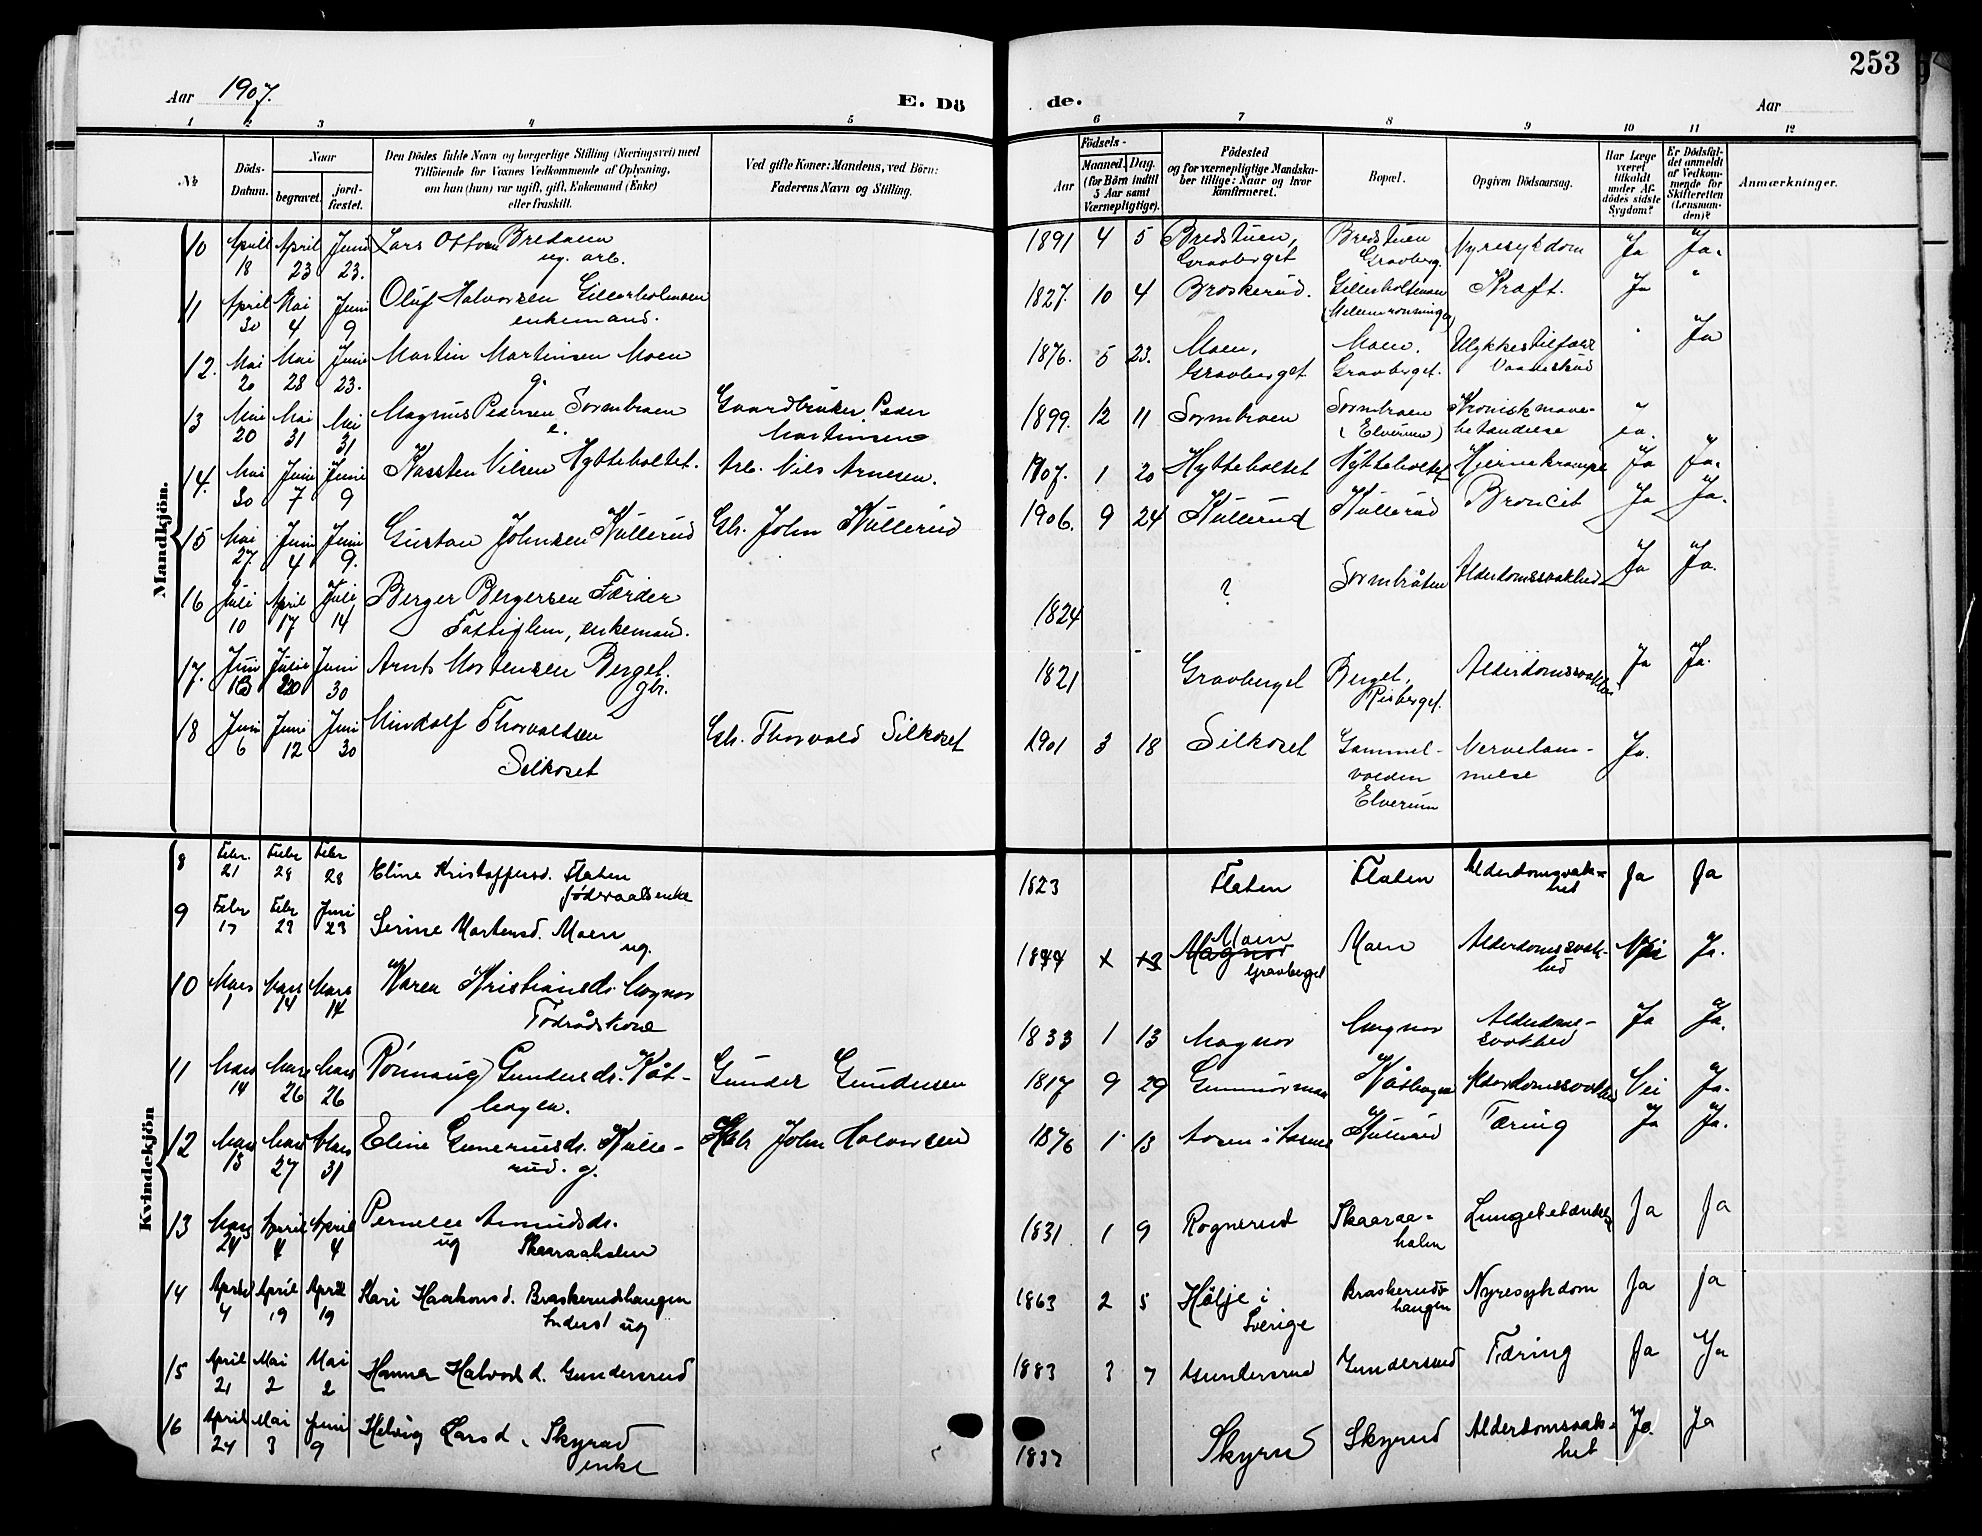 253
Aar 1907.
E. Dö de.
Aar
1 2 3 4 5 6 7 8 9 10 11 12
No
Döds-Datum.
Naar
begravet.
jord-fæstet.
Den Dödes fulde Navn og borgerlige Stilling (Næringsvei) med
Tilföiende for Voxnes Vedkommende af Oplysning,
om han (hun) var ugift, gift, Enkemand (Enke)
eller fraskilt.
Ved gifte Koner: Mandens, ved Börn:
Faderens Navn og Stilling.
Födsels-
Aar
Maaned. Dag.
(for Börn indtil
5 Aar samt
Værnepligtige).
Födested
og for værnepligtige Mandska-
ber tillige: Naar og hvor
konfirmeret.
Bopæl.
Opgiven Dödsaarsag.
Har Læge
været
tilkaldt
under Af-
dödes sidste
Sygdom?
Er Dödsfal-
det anmeldt
af Vedkom-
mende for
Skifteretten
(Lensman-
den)?
Anmærkninger.
Mandkjön.
10 April 18 April 23 Juni 23. Lars Ottosen Bredsuen ug. arb. 1891 4 5 Bredstuen, Gravberget Bredstuen Gravberg. Nyresykdom Ja Ja.
11 April 30 Mai 4 Juni 9 Oluf Halvorsen Gillerholmoen enkemand. 1827. 10 4 Braskerud. Kræft. Ja "
12. Mai 20 Mai 28 Juni 23. Martin Martinsen Moen g. 1876. 5 23. Moen, Gravberget. Moen. Gravberget. Ulykkestilfælde Vaadeskud Ja
13 Mai 20 Mai 31 Mai 31 Magnus Pedersen Sormbraen Gaardbruker Peder Martinsen 1899. 12 11 Sormbraen Sormbraen (Elverum) Kronisk mave-betændelse Ja.
14. Mai 30 Juni 7 Juni 9 Karsten Nilsen Hytteholtet. Arb. Nils Arnesen. 1907. 1 20 Hytteholtet Hytteholtet Hjernekrampe Ja Ja.
15 Mai 27. Juni 4 Juni 9. Gustav Johnsen Kullerud Gb. John Kullerud 1906. 9 24 Kullerud Kullerud Broncit Ja Ja.
16 Juli 10 April 17 Juli 14 Berger Bergersen Færder Fattiglem, enkemand. 1824 ? Sormbråten Alderdomssvakhed Ja Ja.
17. Juni 13 20 Juni 30 Arnt Mortensen Berget. gbr. 1821 Gravberget Berget, Risberget. Alderdomssvakhed Ja Ja.
18 Juni 6 Juni 12 Juni 30 Mindolf Thorvaldsen Silkoset Gb. Thorvald Silkoset 1901 3 18 Silkoset Gammel-volden Elverum Nervelam-melse Ja.
Kvindekjön
8 Febr. 21 Febr 28 Febr 28 Eline Kristoffersd. Flaten föderaadsenke 1823 Flaten Flaten Alderdomsvak-het Ja Ja
9 Febr 17 Febr 23 Juni 23 Serine Mortensd. Moen ug. Moen Magnor Gravberget Moen Alderdomssvak-hed Nei Ja.
10 Mars 1 Mars 14 Mars 14 Karen Kristiansdr. Magnor Födrådskone 1833 1 13 Magnor Magnor Alderdoms-svakhed Ja Ja.
11 Mars 14 Mars 26 Mars 26 Rönnaug Gundersdr. Kåt-hagen. Gunder Gundersen 1817 9 29 Kåthagen Alderdomssvakhed Nei Ja.
12 Mars 15 Mars 27 Mars 31 Eline Gunerusdr. Kulle-rud. g. Gbr John Halvorsen 1876 1 13 Aasen i Aasnes Kullerud Tæring Ja Ja.
13 Mars 24 April 4 April 4 Pernelle Amundsdr. ug Skaaraahalen 1831 1 9 Rognerud Skaaraa-halen Lungebetændelse Ja Ja
14 April 4 April 19 April 19 Kari Haakonsd. Braskerudhaugen Inderst ug 1863 2 5 Höljje i Sverige Braskeruds-haugen Nyresykdom Ja Ja
15 April 21 Mai 2 Mai 2 Hanna Halvord d. Gundersrud 1883 3 7 Gundersrud Gundersrud Tæring Ja Ja
16 April 24 Mai 3 Juni 9 Helvig Larsd. Skyrud enke 1837 Skyrud Skyrud Alderdomssvak-het Ja. Ja